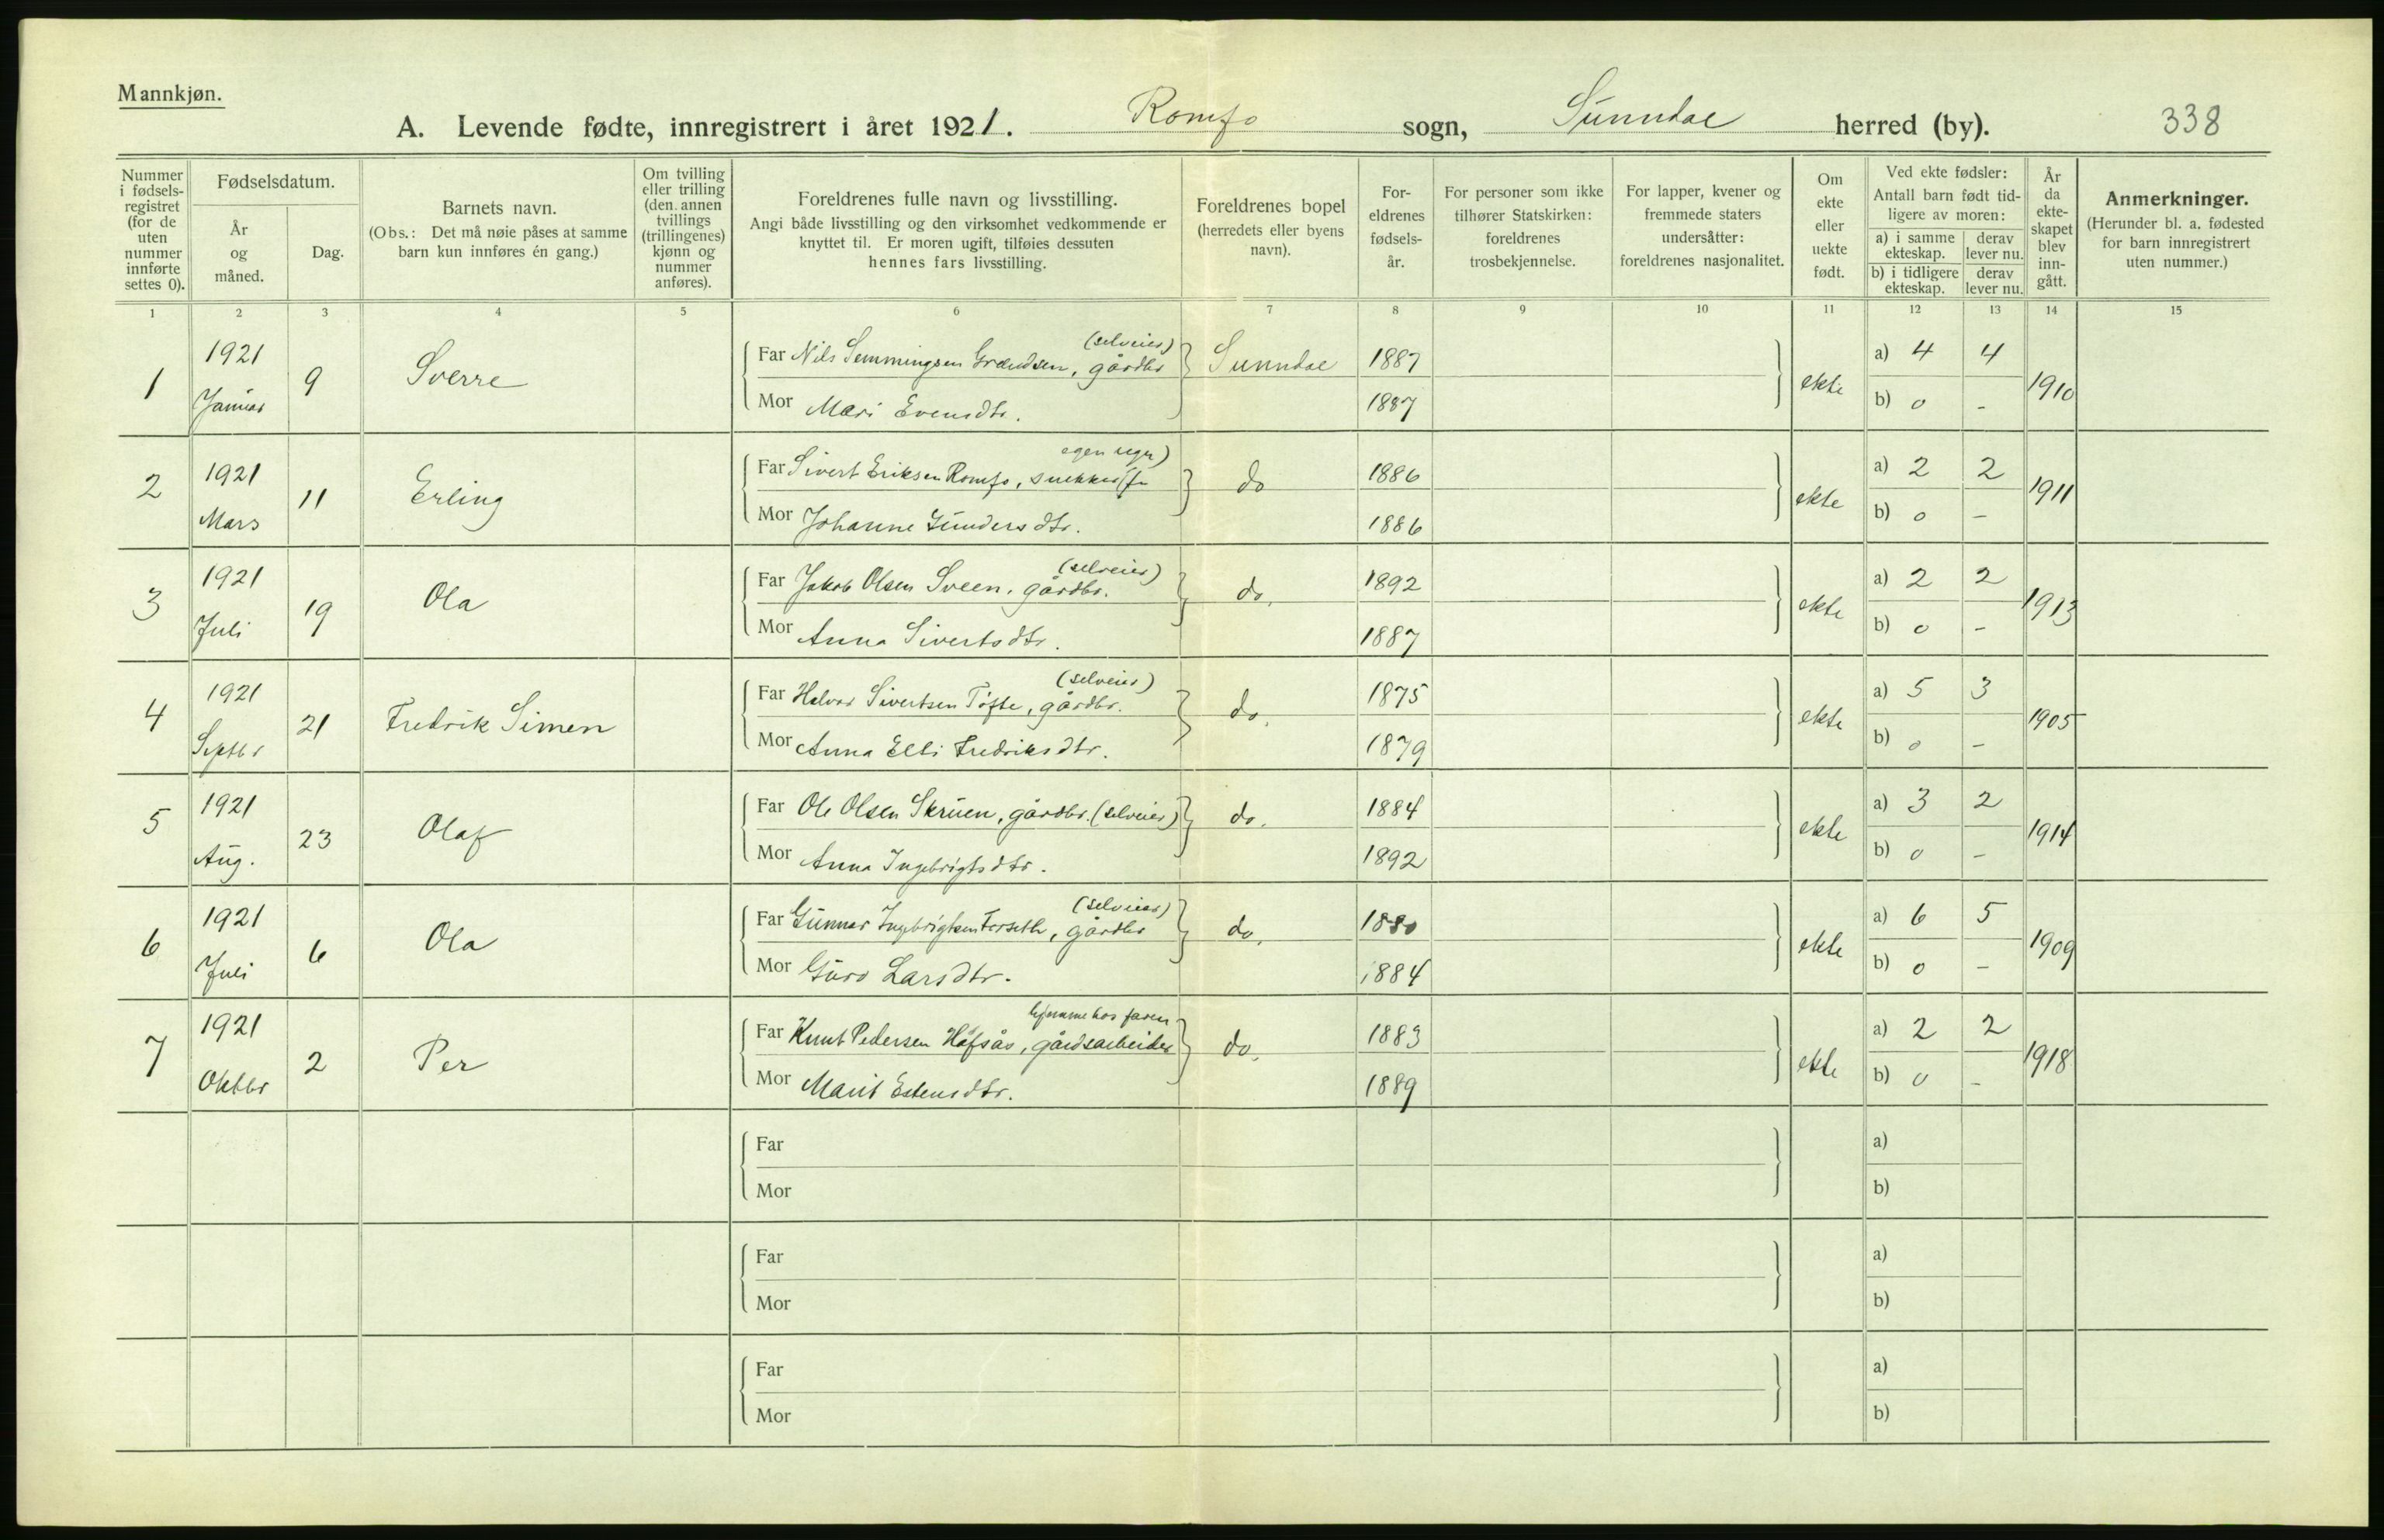 Mannkjøn.
A. Levende fødte, innregistrert i året 1921. Romfo sogn, Sunndal herred (by). 338
Nummer i fødselsregistret (for de uten nummer innførte settes 0).
Fødselsdatum.
År og måned.
Dag.
Barnets navn.
(Obs.: Det må nøie påses at samme barn kun innføres én gang.)
Om tvilling eller trilling (den annen tvillings (trillingenes) kjønn og nummer anføres).
Foreldrenes fulle navn og livsstilling.
Angi både livsstilling og den virksomhet vedkommende er knyttet til. Er moren ugift, tilføies dessuten hennes fars livsstilling.
Foreldrenes bopel (herredets eller byens navn).
Foreldrenes fødselsår.
For personer som ikke tilhører Statskirken: foreldrenes trosbekjennelse.
For lapper, kvener og fremmede staters undersåtter: foreldrenes nasjonalitet.
Om ekte eller uekte født.
Ved ekte fødsler:
Antall barn født tidligere av moren:
a) i samme ekteskap. derav lever nu.
b) i tidligere ekteskap. derav lever nu.
År da ekteskapet blev inngått.
Anmerkninger.
(Herunder bl. a. fødested for barn innregistrert uten nummer.)
1 2 3 4 5 6 7 8 9 10 11 12 13 14 15
1 1921 Januar 9 Sverre
(selveier)
Far Nils Semmingsen Grændsen, gårdbr Sunndal 1887 ekte a) 4 4 1910
Mor Mari Evensdtr. 1887 b) 0 -
2 1921 Mars 11 Erling
egen regn)
Far Sivert Eriksen Romfo, snekker (for do 1886 ekte a) 2 2 1911
Mor Johanne Gundersdtr. 1886 b) 0 -
3 1921 Juli 19 Ola
(selveier)
Far Jakob Olsen Sveen, gårdbr. do. 1892 ekte a) 2 2 1913
Mor Anna Sivertsdtr. 1887 b) 0 -
4 1921 Septbr 21 Fredrik Simen
(selveier)
Far Halvor Sivertsen Tofte, gårdbr. do. 1875 ekte a) 5 3 1905
Mor Anna Elli Fredriksdtr. 1879 b) 0 -
5 1921 Aug. 23 Olaf
Far Ole Olsen Skruen, gårdbr. (selveier) do. 1884 ekte a) 3 2 1914
Mor Anna Ingebrigtsdtr. 1892 b) 0 -
6 1921 Juli 6 Ola
(selveier)
Far Gunnar Ingebrigtsen Forseth, gårdbr do. 1880 ekte a) 6 5 1909
Mor Guro Larsdtr. 1884 b) 0 -
7 1921 Oktbr 2 Per
hjemme hos faren
Far Knut Pedersen Hafsås, gårdsarbeider do. 1883 ekte a) 2 2 1918
Mor Marit Estensdtr. 1889 b) 0 -
Far a)
Mor b)
Far a)
Mor b)
Far a)
Mor b)